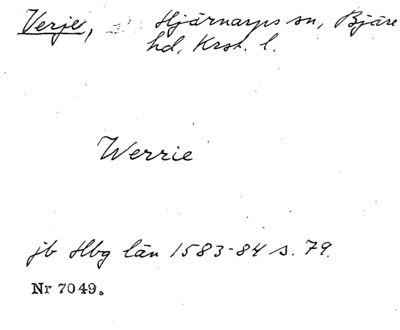 Verje, Hjärnarps sn, Bjäre
hd, Krst. l.
Werrie
jb Hbg län 1583-84 s. 79.
Nr 7049.